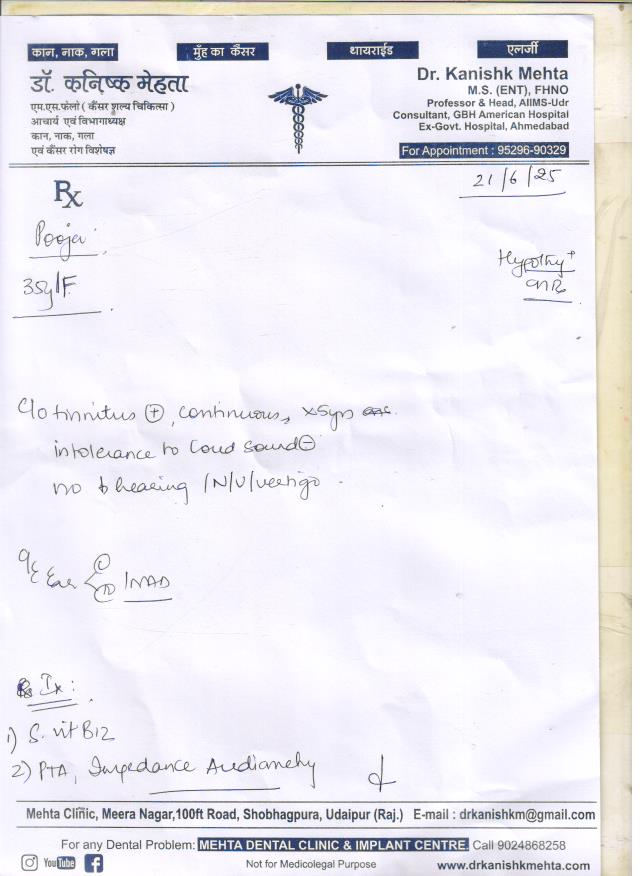 कान, नाक, गला
मुँह का कैंसर
थायराईड
एलर्जी
डॉ. कनिष्क मेहता
एम.एस.फेलो ( कैंसर शल्य चिकित्सा )
आचार्य एवं विभागाध्यक्ष
कान, नाक, गला
एवं कैंसर रोग विशेषज्ञ
Dr. Kanishk Mehta
M.S. (ENT), FHNO
Professor & Head, AIIMS-Udr
Consultant, GBH American Hospital
Ex-Govt. Hospital, Ahmedabad
For Appointment : 95296-90329
Rx
21/6/25
Pooja
35y/F
Hypothy +
c/o tinnitus ⊕, continuous, x5yrs
intolerance to loud sound ⊖
no ↓ hearing /N/V/vertigo
O/E Ear
NAD
Ix:
1) S. vit B12
2) PTA, Impedance Audiometry
Mehta Clinic, Meera Nagar,100ft Road, Shobhagpura, Udaipur (Raj.) E-mail : drkanishkm@gmail.com
For any Dental Problem: MEHTA DENTAL CLINIC & IMPLANT CENTRE. Call 9024868258
YouTube
Not for Medicolegal Purpose
www.drkanishkmehta.com